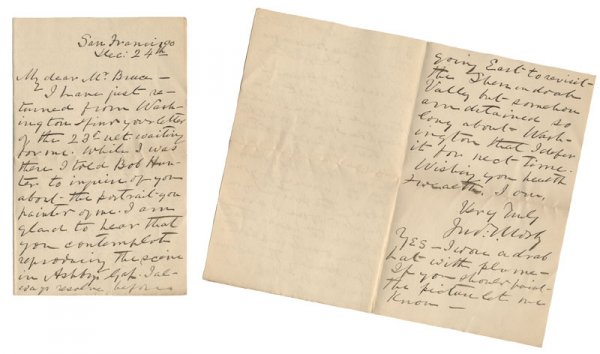 San Francisco
Dec: 24th
My dear Mr. Bruce —
I have just re-
turned from Wash-
ington & find your letter
of the 23d ult waiting
for me. While I was
there I told Bob Hun-
ter to inquire of you
about the portrait you
painter of me. I am
glad to hear that
you contemplate
reproducing the scene
in Ashby's Gap. I al-
ways resolve before
going East to revisit
the Shenandoah
Valley but somehow
am detained so
long about Wash-
ington that I defer
it for next time.
Wishing you health
& wealth, I am,
Very Truly
Jno: S. Mosby
Yes — I wore a drab
hat with plume —
If you should paint
the picture let me
Know —